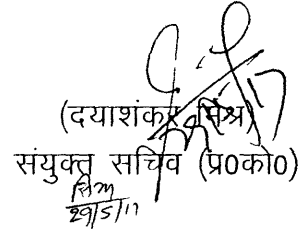 (दयाशंकर मिश्र)
संयुक्त सचिव (प्र0को0)
29/5/17